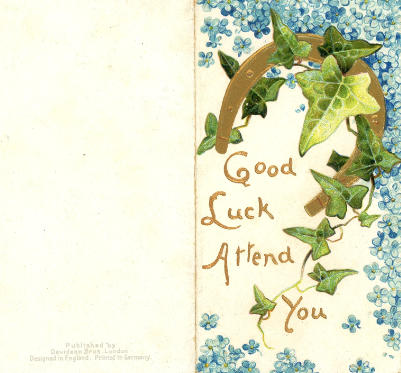 Good
Luck
Attend
You
Published by
Davidson Bros. London
Designed in England. Printed in Germany.